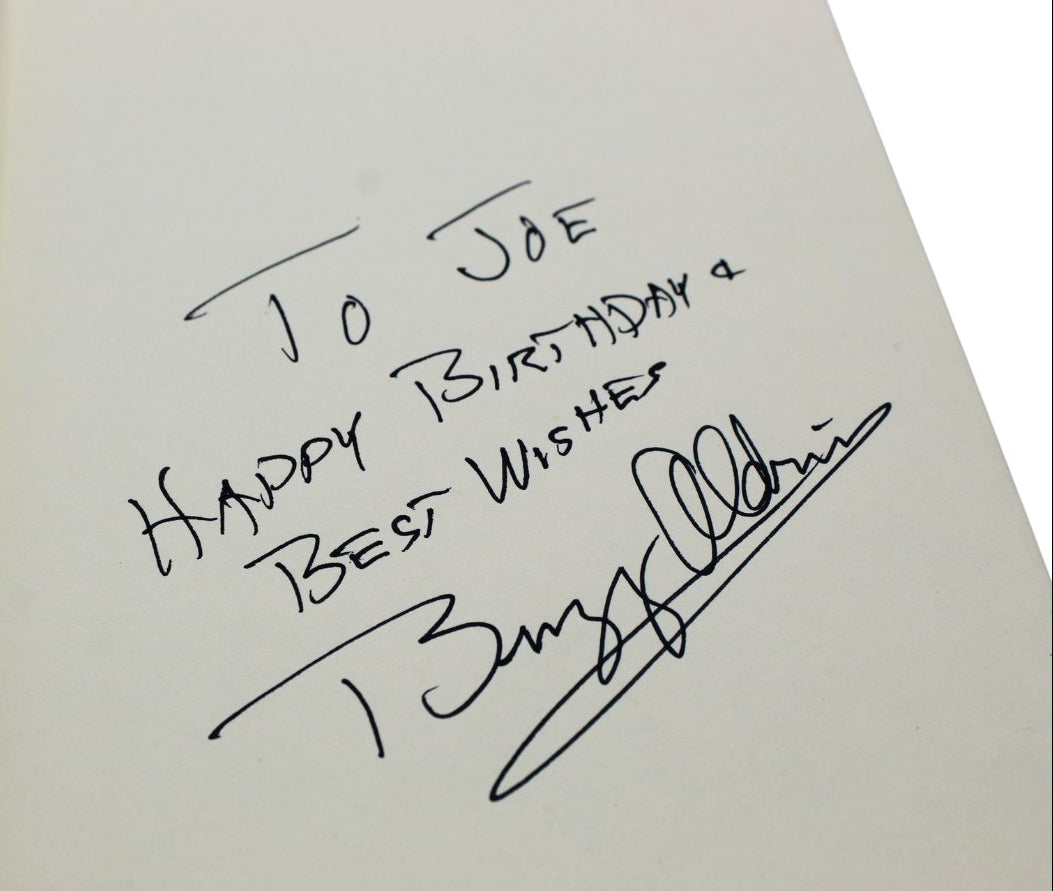 TO JOE
HAPPY BIRTHDAY &
BEST WISHES
Buzz Aldrin